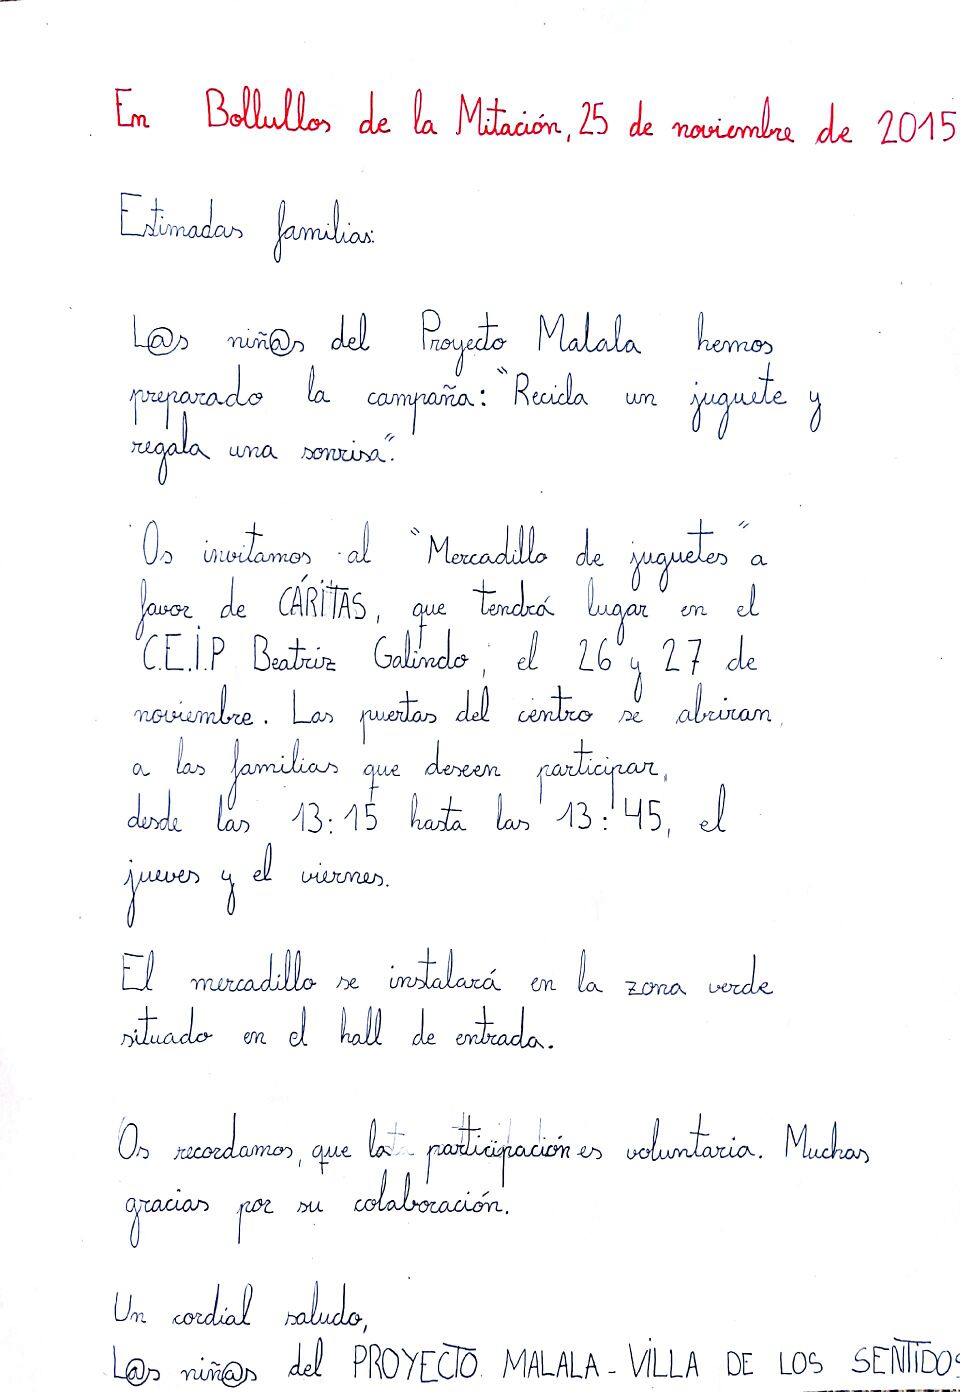 En Bollullos de la Mitación, 25 de noviembre de 2015
Estimadas familias:
L@s niñ@s del Proyecto Malala hemos
preparado la campaña: "Recicla un juguete y
regala una sonrisa".
Os invitamos al "Mercadillo de juguetes" a
favor de CÁRITAS, que tendrá lugar en el
C.E.I.P Beatriz Galindo, el 26 y 27 de
noviembre. Las puertas del centro se abriran
a las familias que deseen participar,
desde las 13:15 hasta las 13:45, el
jueves y el viernes.
El mercadillo se instalará en la zona verde
situado en el hall de entrada.
Os recordamos, que la participación es voluntaria. Muchas
gracias por su colaboración.
Un cordial saludo,
L@s niñ@s del PROYECTO MALALA - VILLA DE LOS SENTIDOS